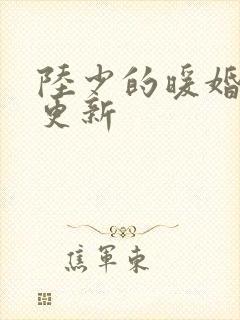 陸少的暖婚
更新
焦軍東